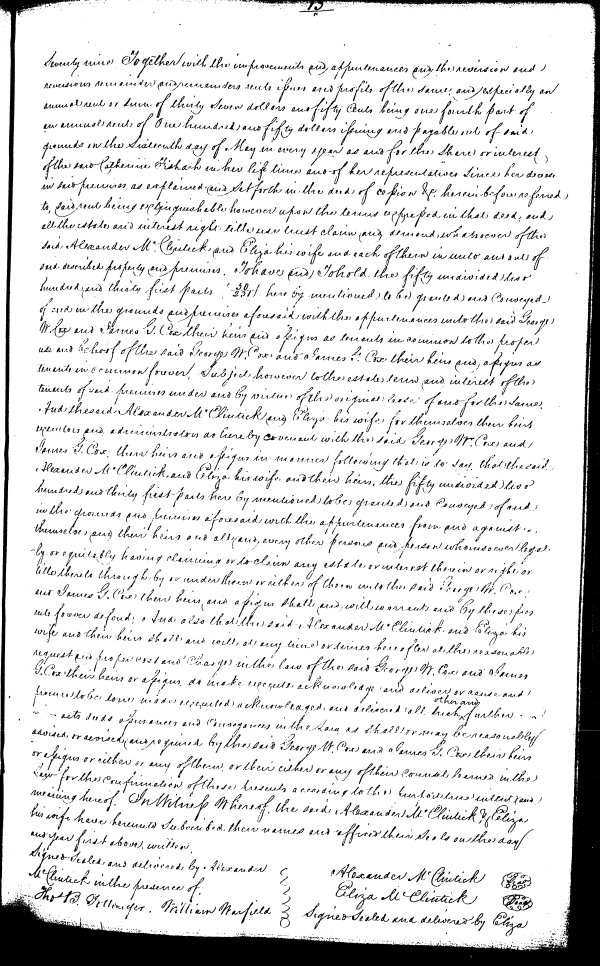 15
Seventy nine Together with the improvements and appurtenances and the reversion and
reversions remainder and remainders rents issues and profits of the same, and especially an
annual rent or sum of thirty Seven dollars and fifty Cents being one fourth part of
an annual rent of One hundred and fifty dollars issuing and payable out of said
grounds on the Sixteenth day of May in every year as and for the Share or interest
of the said Catherine in her life time and of her representatives Since her decease
in said premises as explained and Set forth in the deed of &c herein before referred
to, said rent being extinguishable however upon the terms expressed in that deed, and
all the estate and interest right title use trust claim and demand whatsoever of the
said Alexander McClintick and Eliza his wife and each of them in unto and out of
said described property and premises, To have and To hold the fifty undivided two
hundred and thirty first parts (50/231) here by mentioned to be granted and Conveyed
of and in the grounds and premises aforesaid with the appurtenances unto the said George
W. Cox and James G. Cox their heirs and assigns as tenants in common to the proper
use and behoof of the said George W. Cox and James G. Cox their heirs and assigns as
tenants in common forever. Subject however to the estate term and interest of the
tenants of said premises under and by virtue of the original lease of and for the same.
And the said Alexander McClintick and Eliza his wife for themselves their heirs
executors and administrators do hereby covenant with the said George W. Cox and
James G. Cox, their heirs and assigns in manner following that is to say, that the said
Alexander McClintick and Eliza his wife and their heirs, the fifty undivided two
hundred and thirty first parts here by mentioned to be granted and conveyed of and
in the grounds and premises aforesaid with the appurtenances from and against
themselves and their heirs and all and every other person and persons whomsoever legal-
-ly or equitably having claiming or to claim any estate or interest therein or right or
title thereto through by or under them or either of them unto the said George W. Cox
and James G. Cox their heirs and assigns shall and will warrant and by these pres
ents forever defend; And also that the said Alexander McClintick and Eliza his
wife and their heirs shall and will at any time or times hereafter at the reasonable
request and proper cost and Charge in the law of the said George W. Cox and James
G. Cox their heirs or assigns do make execute acknowledge and deliver or cause and
procure to be done made executed acknowledged and delivered all such other and further
acts deeds assurances and conveyances in the Law as shall or may be reasonably
advised or devised and required by the said George W. Cox and James G. Cox their heirs
or assigns or either or any of them, or their either or any of their counsel learned in the
Law for the confirmation of these presents according to the true intent and
meaning hereof. In Witness Whereof the said Alexander McClintick & Eliza
his wife have hereunto Subscribed their names and affixed their Seals on the day
and year first above written.
Signed Sealed and delivered by Alexander
McClintick in the presence of
Thos B. William Warfield
Alexander McClintick Seal
Eliza McClintick Seal
Signed Sealed and delivered by Eliza